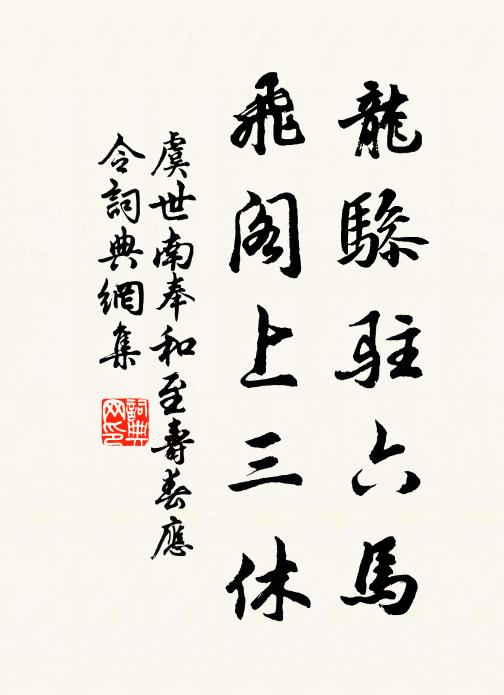 龍驂駐六馬
飛閣上三休
虞世南奉和至壽春應
令詞典網集
詞典
网印